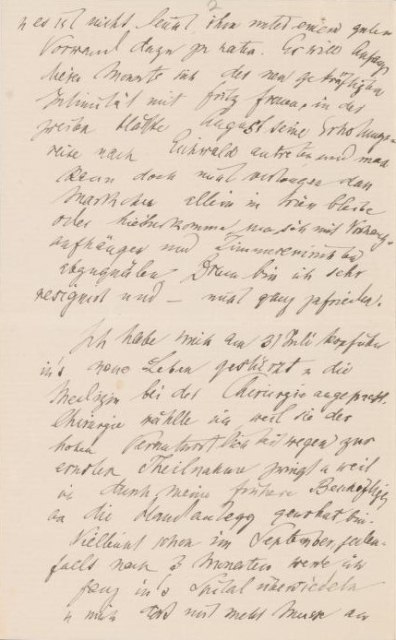 2
u es ist nicht leicht, ihm unter einem guten
Vorwand dazu zu raten. Er will Anfangs
dieses Monats sich der neu gekräftigten
Intimität mit Fritz freuen, in der
zweiten Hälfte August seine Erholungs-
reise nach Eichwald antreten und man
kann doch nicht verlangen dass
Martchen allein in Wien bleibe
oder hieher komme, um sich mit Vorhang-
aufhängen und Zimmereinrichten
abzuquälen. Drum bin ich sehr
resignirt und – nicht ganz zufrieden.
Ich habe mich am 31 Juli kopfüber
in's neue Leben gestürzt u die
Medizin bei der Chirurgie angepackt.
Chirurgie wählte ich weil sie der
hohen Verantwortlichkeit wegen zur
ernsten Theilnahme zwingt u weil
ich durch meine frühere Beschäftigung
an die Handanlegg gewohnt bin.
Vielleicht schon im September, jeden-
falls nach 3 Monaten werde ich
ganz in's Spital übersiedeln
u mich dort mit mehr Musse an